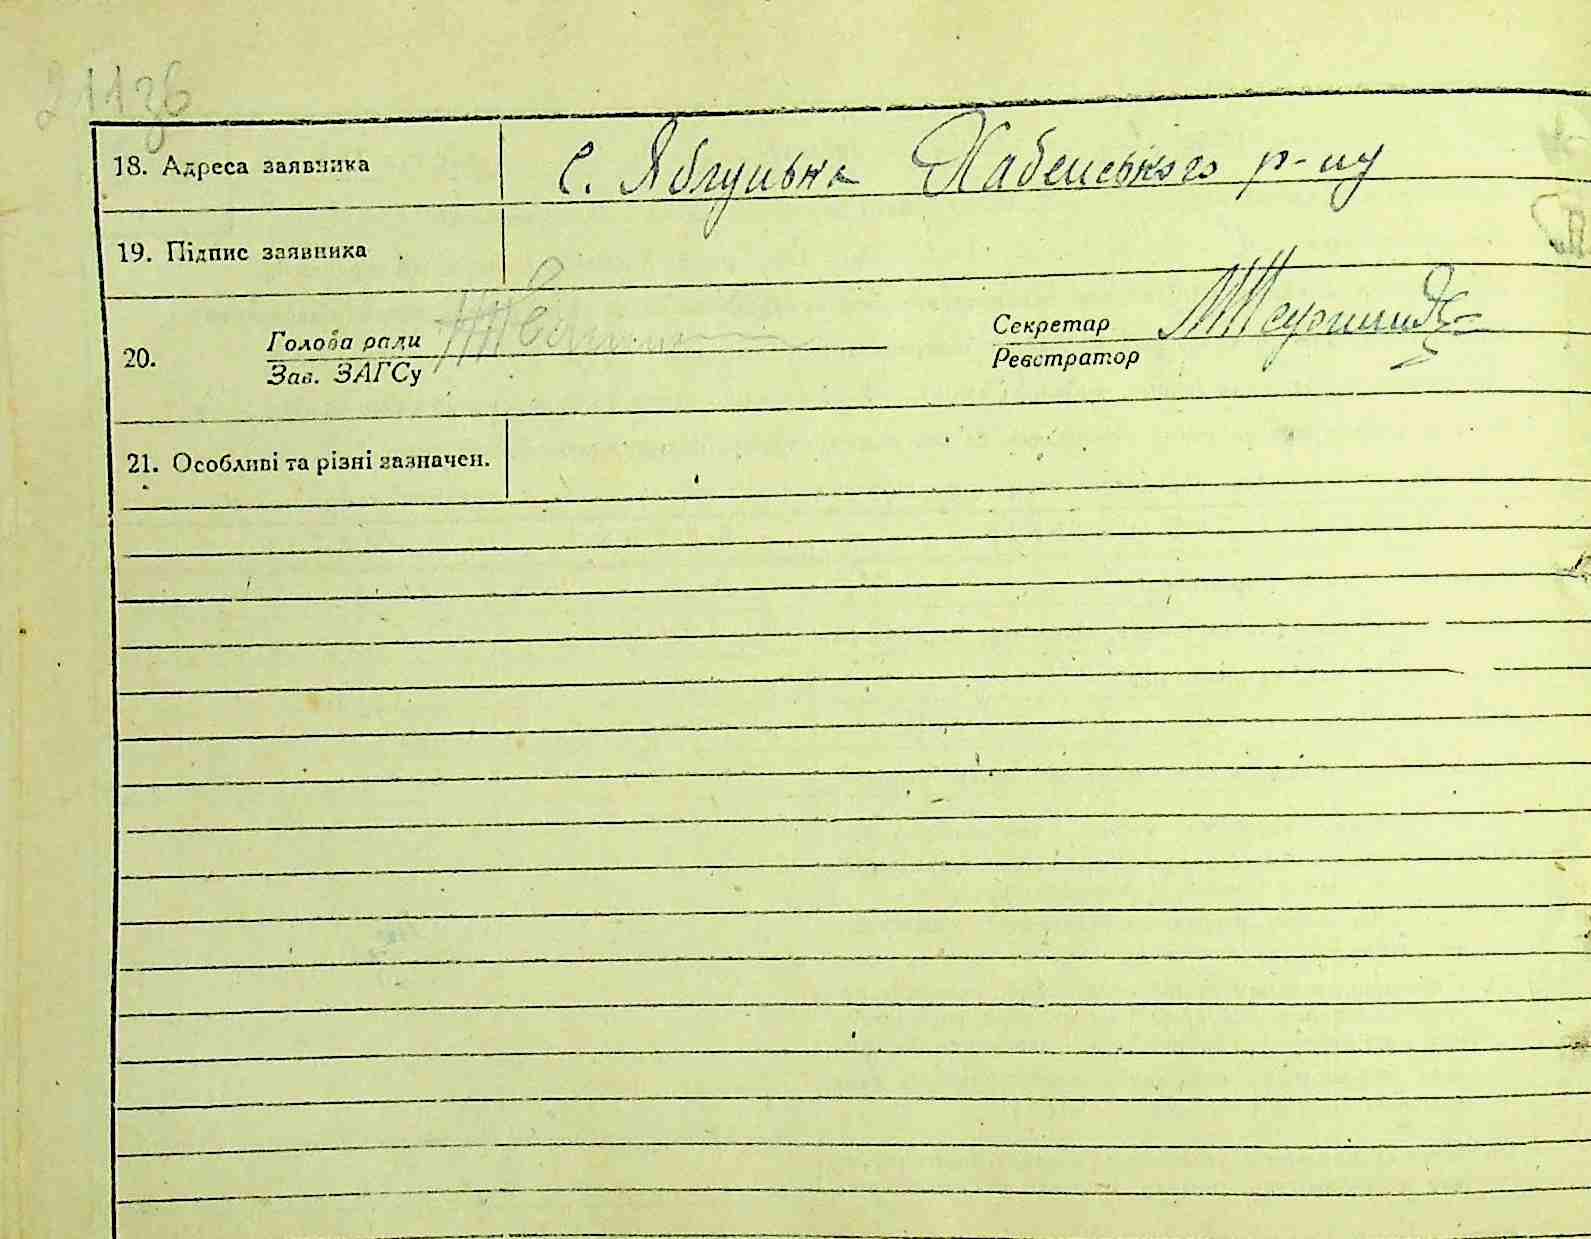 211зб
18. Адреса заявника с. Яблуцька Хабенського р-ну
19. Підпис заявника
Голова ради Секретар
20.
Зав. ЗАГСу Реєстратор
21. Особливі та різні зазначен.